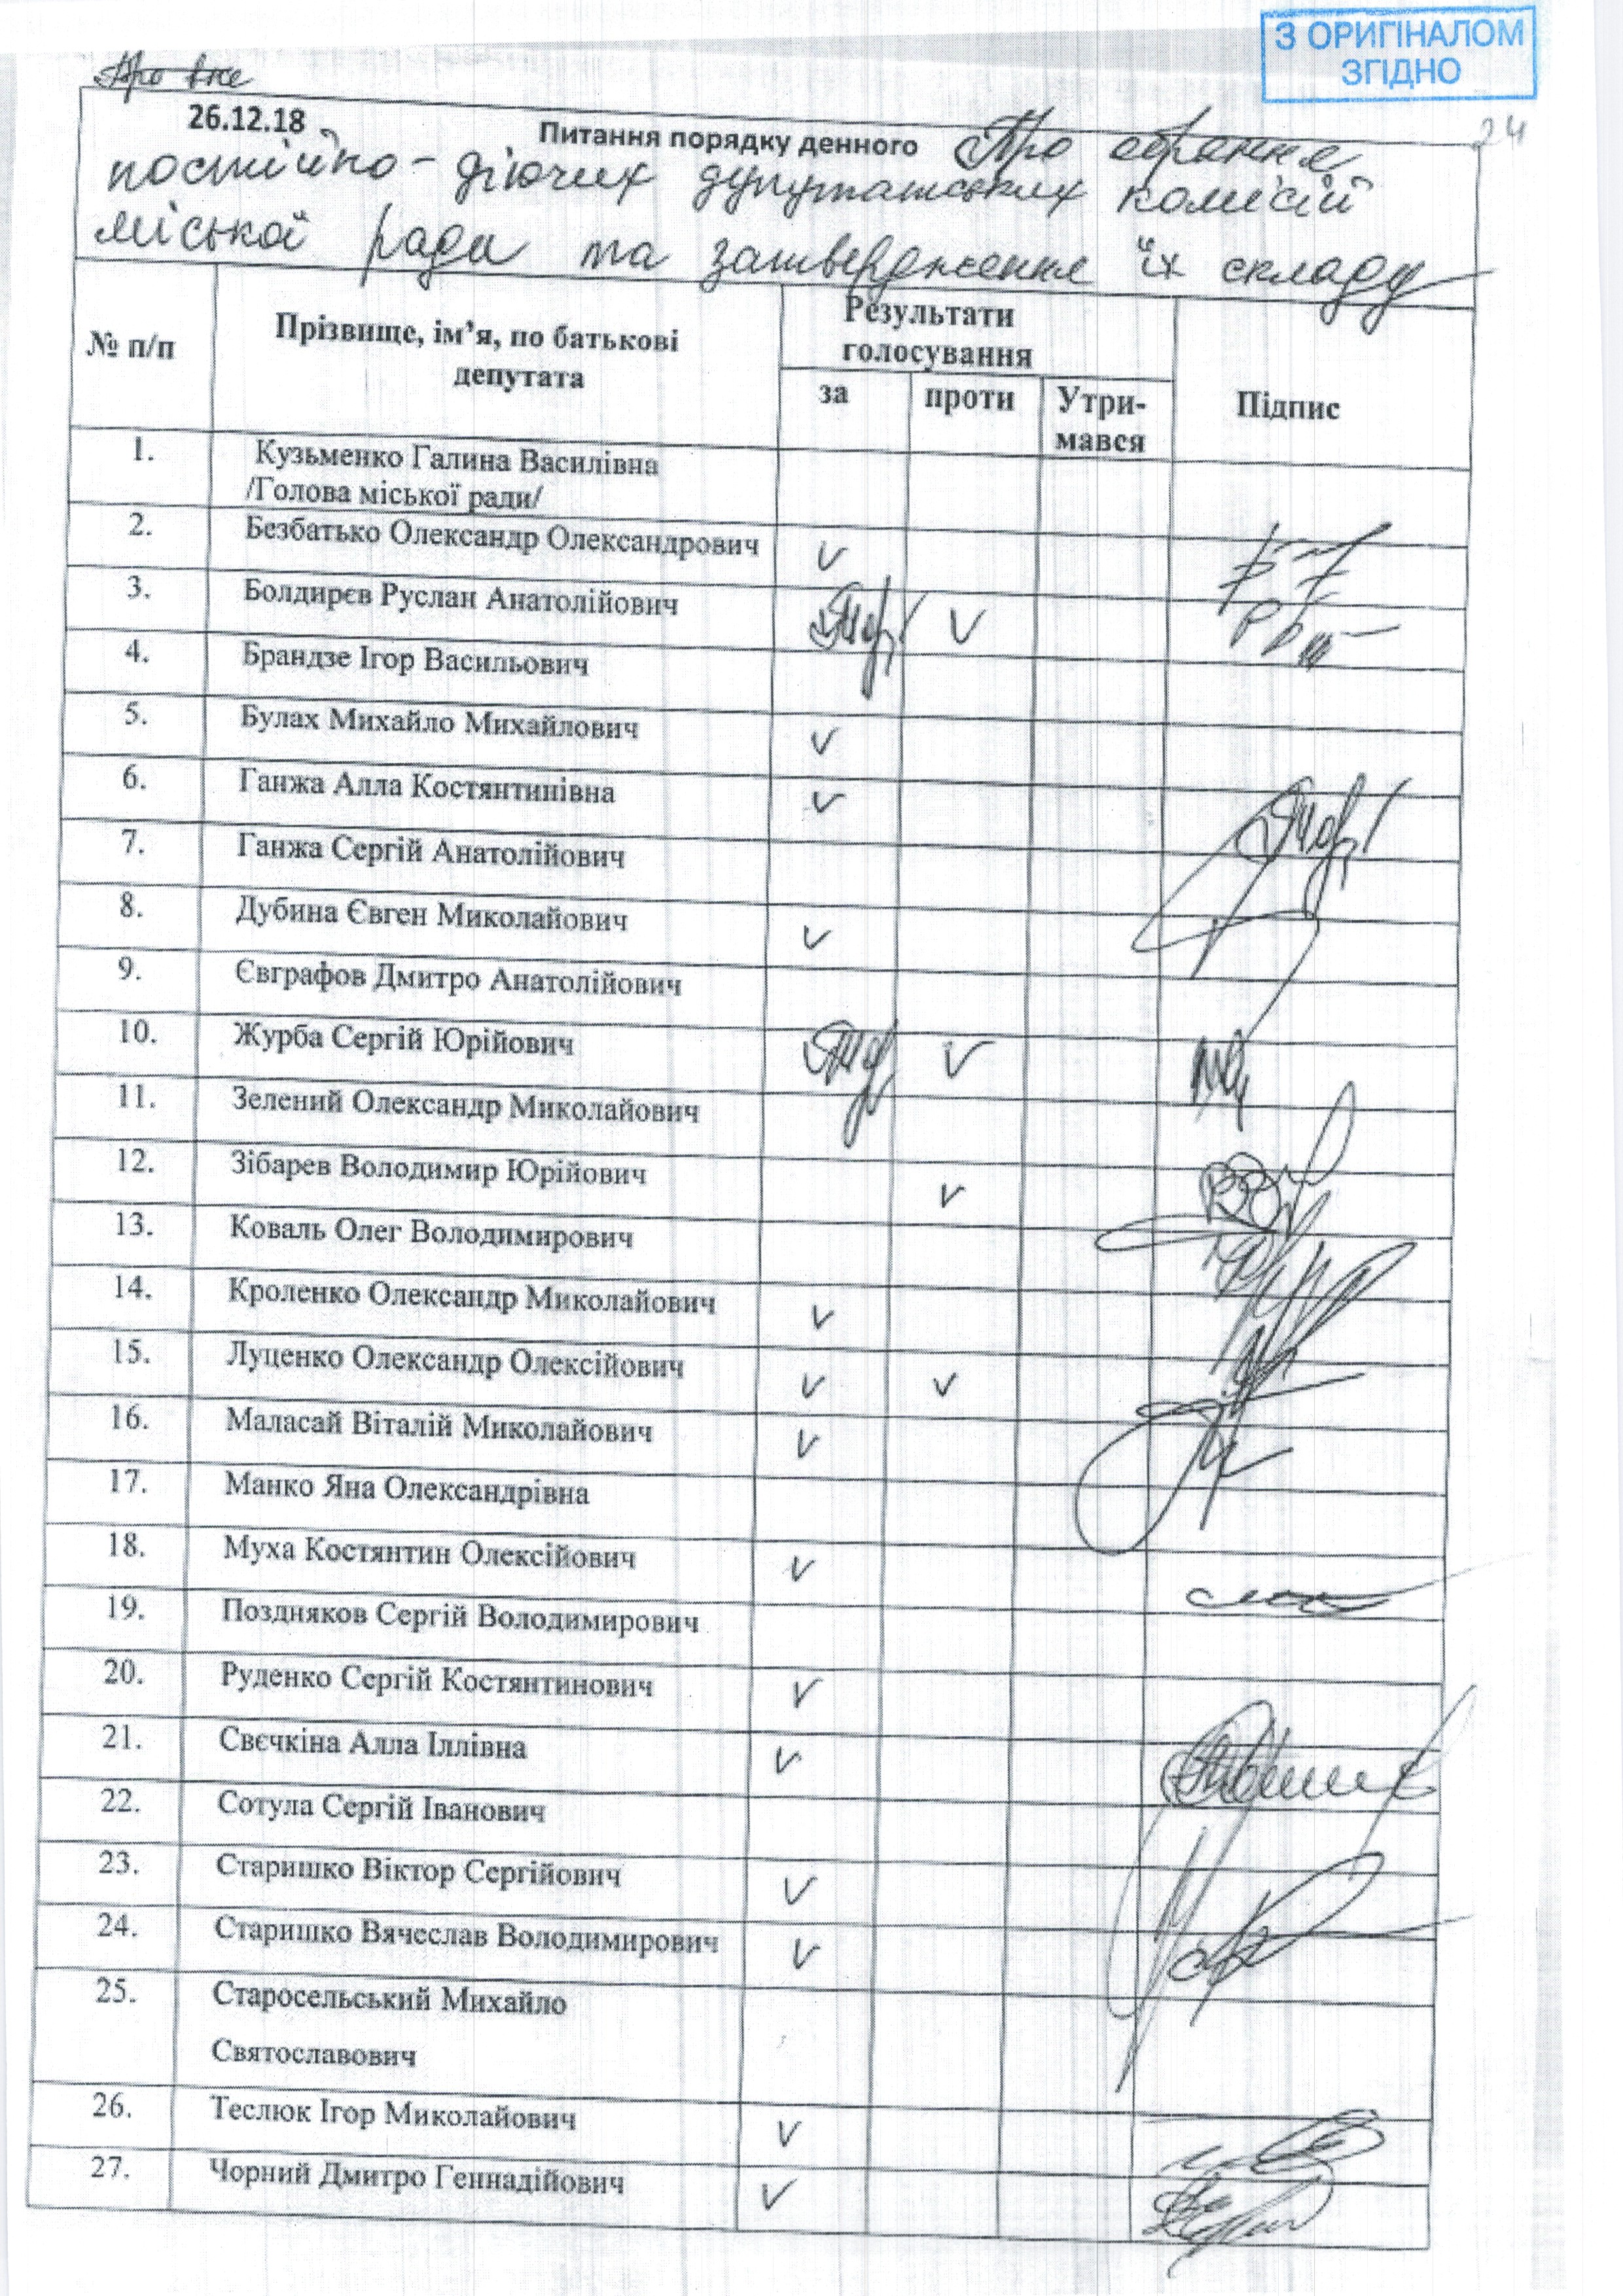 З ОРИГІНАЛОМ
ЗГІДНО
Про вне
24
26.12.18 Питання порядку денного Про обрання
постійно-діючих депутатських комісій
міської ради та затвердження їх складу
№ п/п
Прізвище, ім’я, по батькові
депутата
Результати
голосування
за
проти
Утри-
мався
Підпис
1. Кузьменко Галина Василівна
/Голова міської ради/
2. Безбатько Олександр Олександрович V
3. Болдирєв Руслан Анатолійович V
4. Брандзе Ігор Васильович
5. Булах Михайло Михайлович V
6. Ганжа Алла Костянтинівна V
7. Ганжа Сергій Анатолійович
8. Дубина Євген Миколайович V
9. Євграфов Дмитро Анатолійович
10. Журба Сергій Юрійович V
11. Зелений Олександр Миколайович
12. Зібарев Володимир Юрійович V
13. Коваль Олег Володимирович
14. Кроленко Олександр Миколайович V
15. Луценко Олександр Олексійович V V
16. Маласай Віталій Миколайович V
17. Манко Яна Олександрівна
18. Муха Костянтин Олексійович V
19. Поздняков Сергій Володимирович
20. Руденко Сергій Костянтинович V
21. Свєчкіна Алла Іллівна V
22. Сотула Сергій Іванович
23. Старишко Віктор Сергійович V
24. Старишко Вячеслав Володимирович V
25. Старосельський Михайло
Святославович
26. Теслюк Ігор Миколайович V
27. Чорний Дмитро Геннадійович V